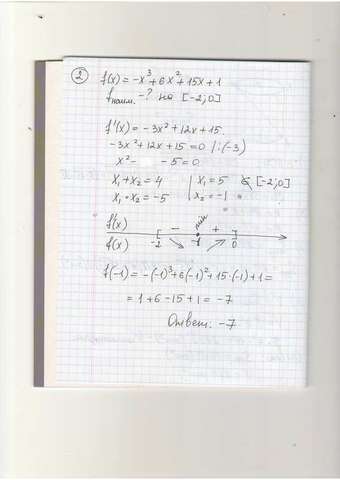 2
f(x) = -x³+6x²+15x+1
fнаим. -? на [-2;0]
f'(x) = -3x²+12x+15
-3x²+12x+15=0 |:(-3)
x²- -5=0
x₁+x₂=4 | x₁=5 ∉ [-2;0]
x₁·x₂=-5 | x₂=-1
f'(x) - min +
f(x) -2 -1 0
f(-1) = -(-1)³+6(-1)²+15·(-1)+1=
= 1+6-15+1 = -7
Ответ: -7